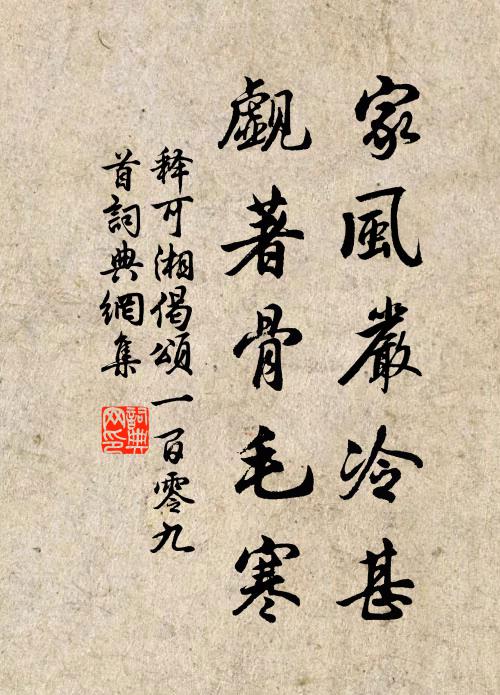 家風嚴冷甚
覷著骨毛寒
释可湘偈頌一百零九
首詞典網集
詞典
网印